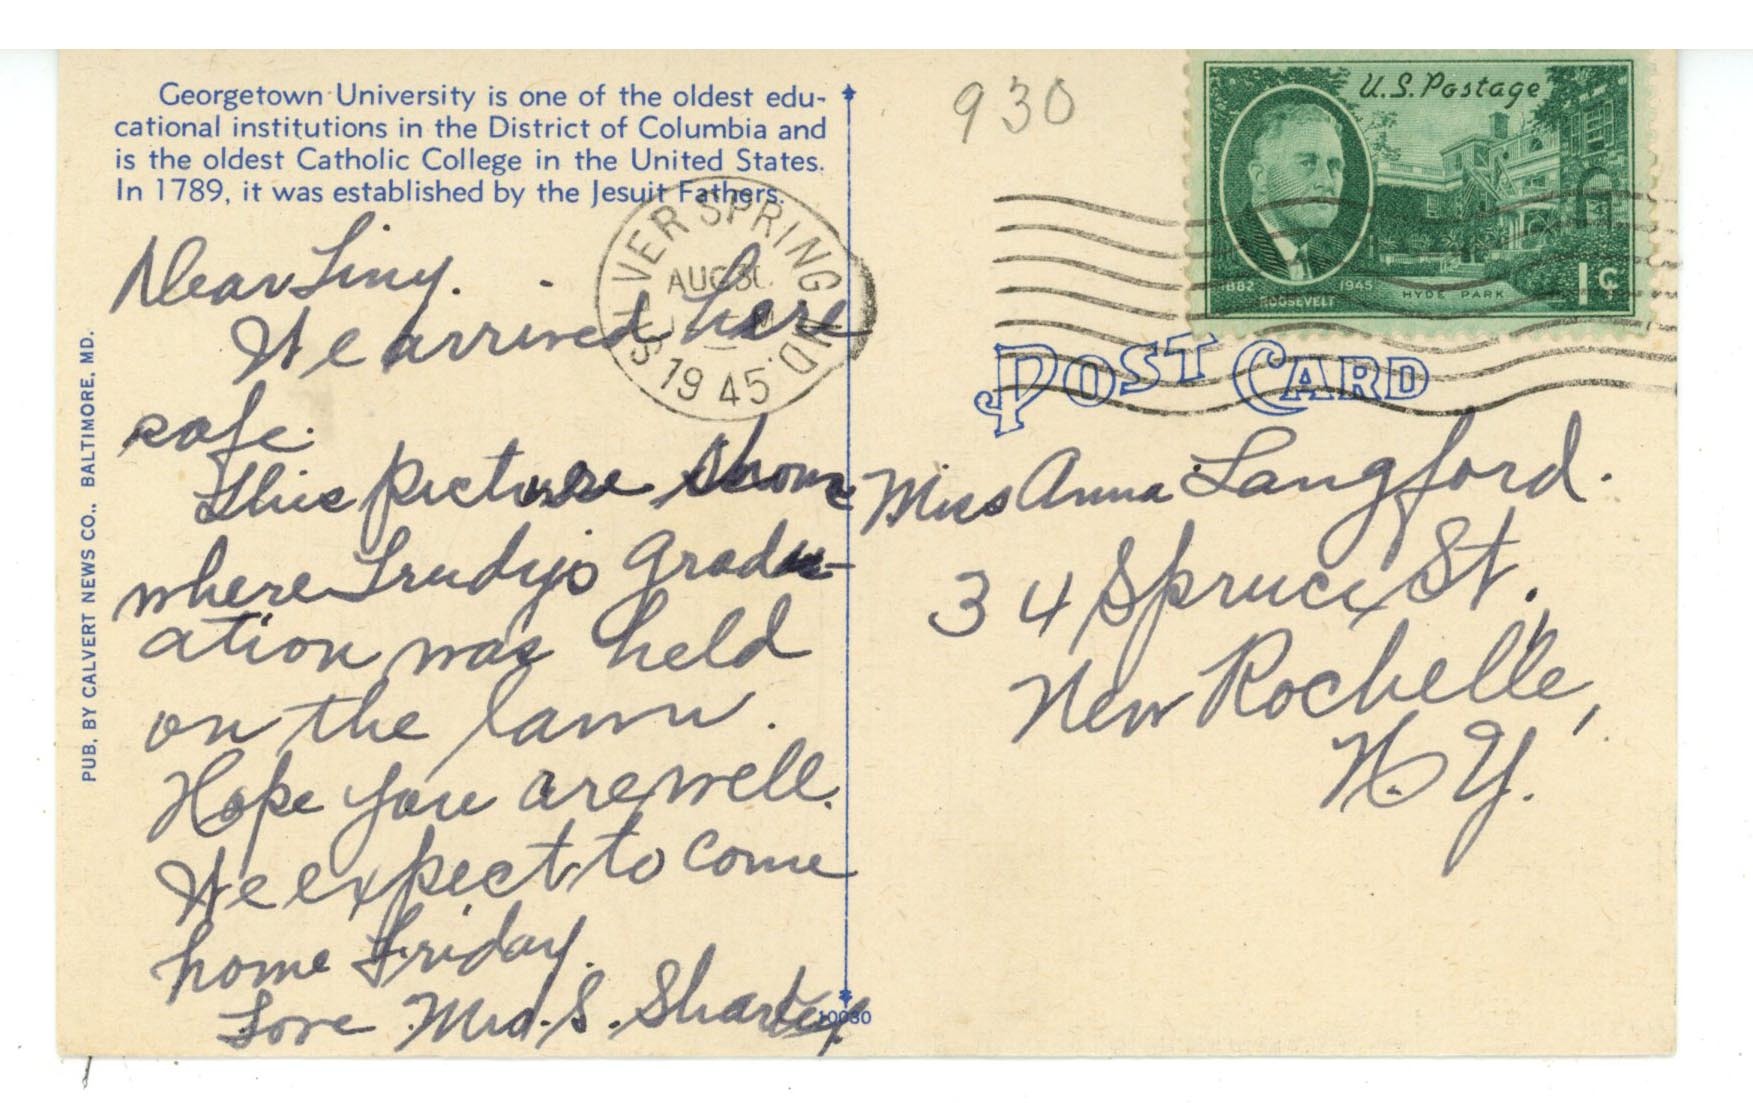 Georgetown University is one of the oldest edu-
cational institutions in the District of Columbia and
is the oldest Catholic College in the United States.
In 1789, it was established by the Jesuit Fathers.
Dear
We arrived here
safe.
This picture shows
where Trudy's gradu-
ation was held
on the lawn.
Hope you are well.
We expect to come
home Friday.
Love Mrs. S.
PUB. BY CALVERT NEWS CO., BALTIMORE, MD.
10030
SILVER SPRING MD.
AUG
1945
930
U.S. Postage
1882 1945
ROOSEVELT
HYDE PARK
1¢
POST CARD
Miss Anna Langford.
34 Spruce St.
New Rochelle,
N.Y.